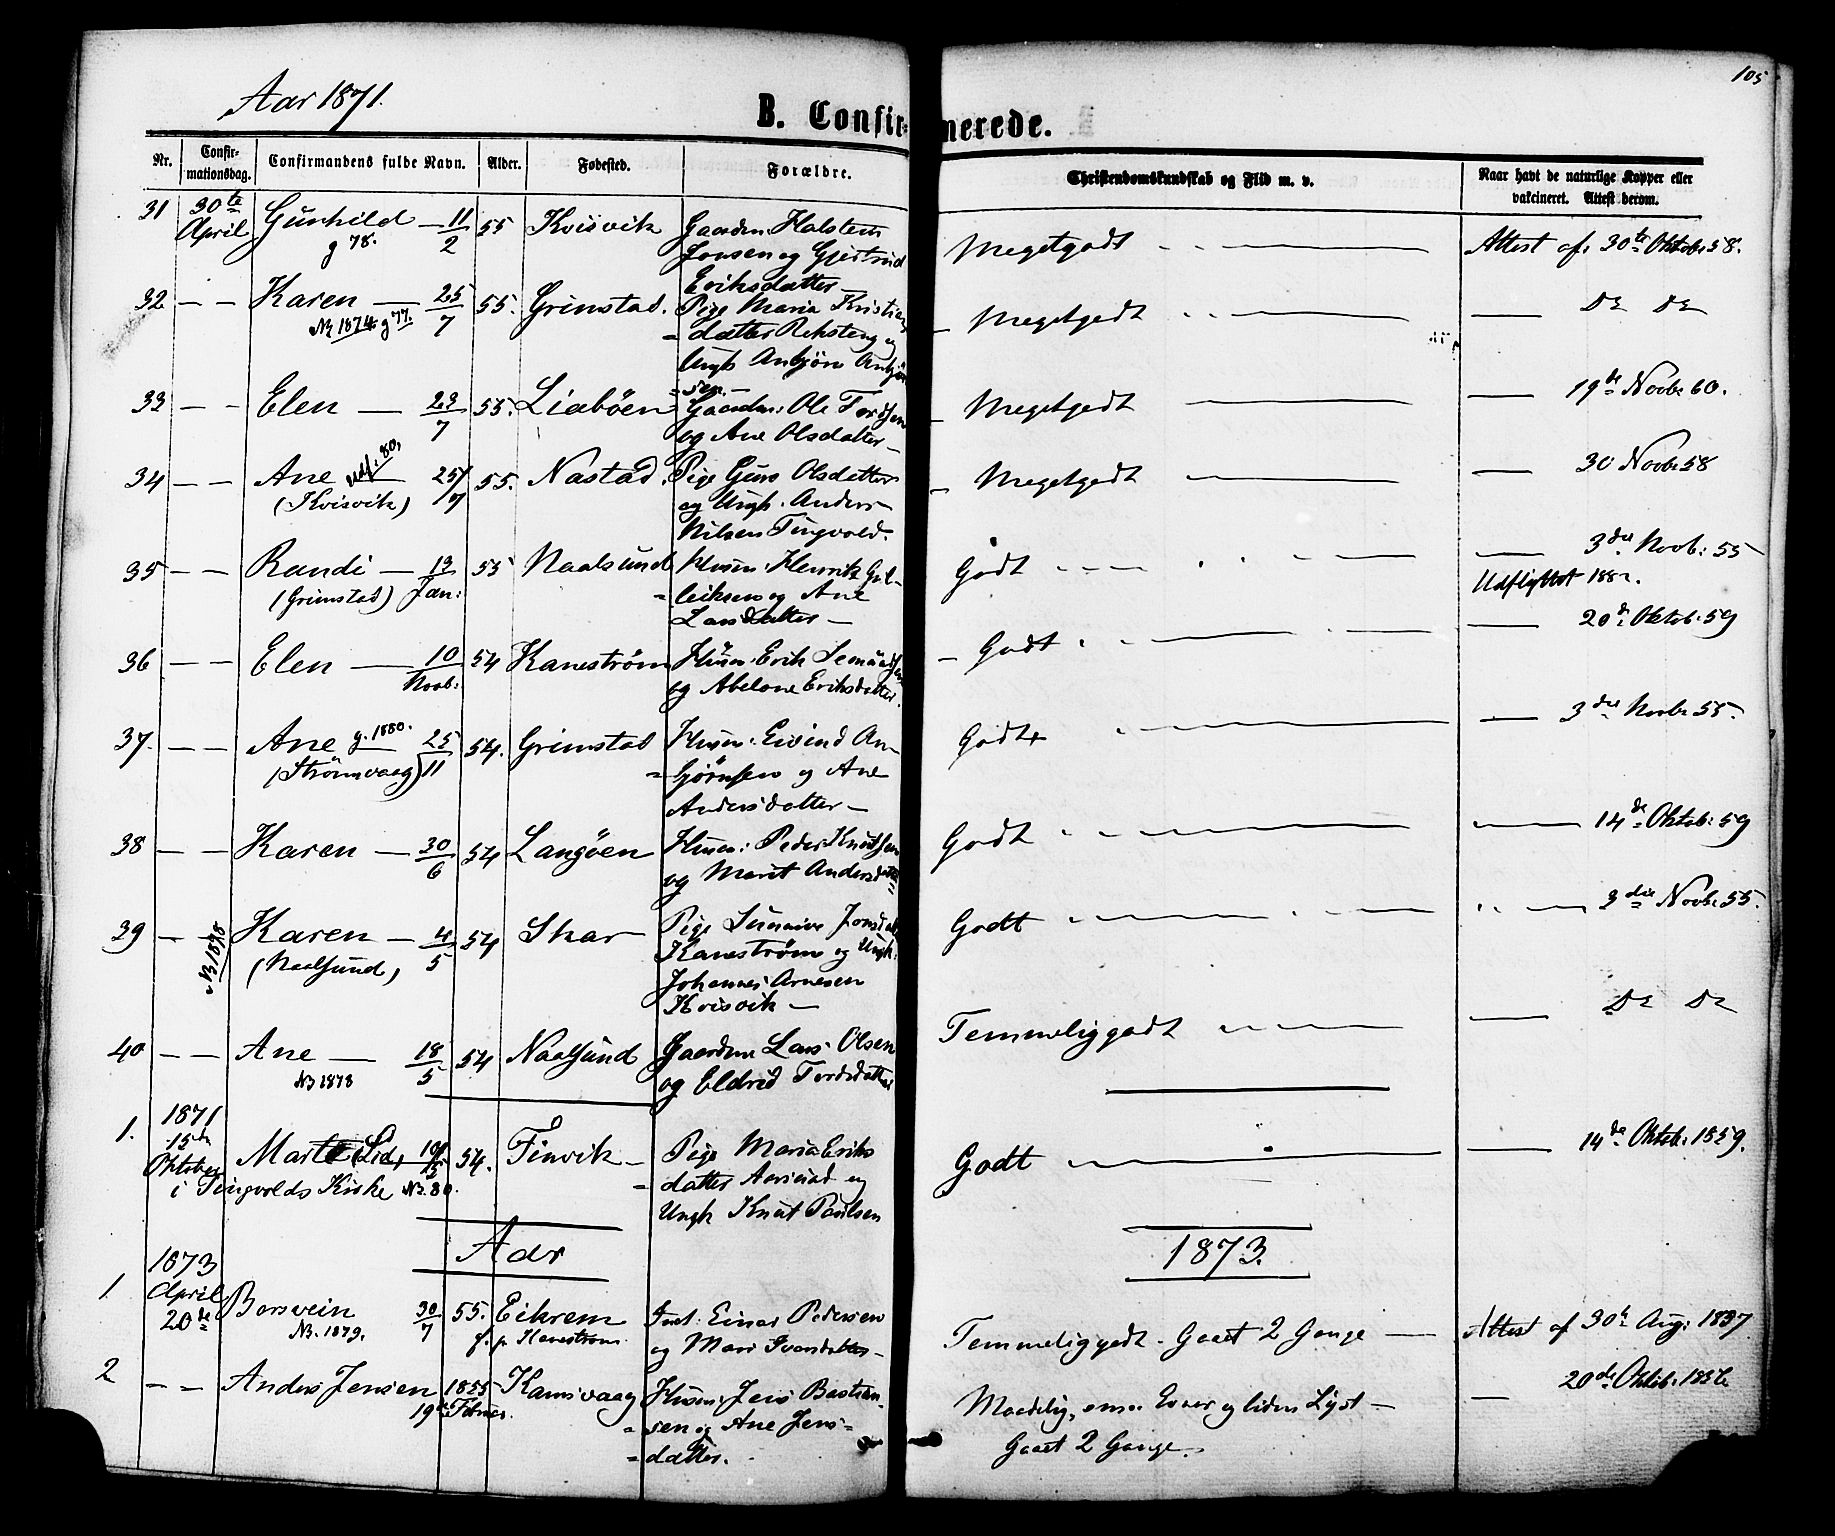 105
Aar 1871.
B. Confirmerede.
Nr. Confirmationsdag. Confirmandens fulde Navn. Alder. Fødested. Forældre. Christendomskundskab og Flid m. v. Naar havt de naturlige Kopper eller vakcineret. Attest derom.
31 30te April Gunhild 11/2 55 Kvisvik Gaardm. Halsten Meget godt Attest af 30te Oktob. 58.
g 78. Jonsen og Gjertrud
Eriksdatter
32 — — Karen — 25/7 55. Grimstad. Pige Maria Kristians Meget godt — Do Do
N3 1874. g 77. datter Reksteng og
Ungk Anbjørn Anbjørn
sen —
33 — — Elen — 23/7 55. Liabøen Gaardm: Ole Tordsen Meget godt — 19de Novb. 60.
og Ane Olsdatter
34 — — Ane Udf: 80, 25/7 55. Nastad. Pige Guro Olsdatter Meget godt — 30 Novb 58
(Kvisvik) og Ungk. Anders
Nilsen Tingvold.
35 — — Randi — 13/Jan: 55 Naalsund Husm. Henrik Gul- Godt — 3die Novb: 55
(Grimstad) leiksen og Ane Udflyttet 1882.
Larsdatter —
36 — — Elen — 10/Novb: 54 Kanestrøm Husm. Erik Godt — 20de Oktob. 59
og Abelone Eriksdatter.
37. — — Ane g. 1880. 25/11 54. Grimstad Husm. Eivind An- Godt — 3die Novb. 55.
(Strømsvaag) bjørnsen og Ane
Andersdatter —
38 — — Karen — 30/6 54 Langøen Husm: Peder Knudsen Godt — 14de Oktob. 59
og Marit Andersdatter
39 — — Karen — 4/5 54 Skar Pige Sunnive Jonsdatt Godt — 3die Novb. 55.
N3 1878 (Naalsund) Kanestrøm og Ungk.
Johannes Arnesen
Kvisvik —
40 — — Ane — 18/5 54 Naalsund Gaardm Lars Olsen Temmelig godt — Do Do
N3 1878 og Eldrid Tordsdatter
1. 1871 15de Oktober Marte (Lid) 54. Finvik — Pige Maria Eriks Godt — 14de Oktob. 1859.
i Tingvolds Kirke N3. 80. datter Aarsund og
Ungk Knut Paulsen
Aar 1873.
1 1873 April 20de Borsvein 30/7 55. Eikrem Einar Pedersen Temmelig godt. Gaaet 2 Gange — Attest af 30te Aug: 1857
N3. 1879. f. p. Kanestrøm og Mari Ivarsdatter
2 — — Anders Jensen 1855 19de Februar. Kamsvaag Husm: Jens Bastian- Maadelig, Evner og liden Lyst — — 20de Oktob. 1856
sen og Ane Jens- Gaaet 2 Gange.
datter.